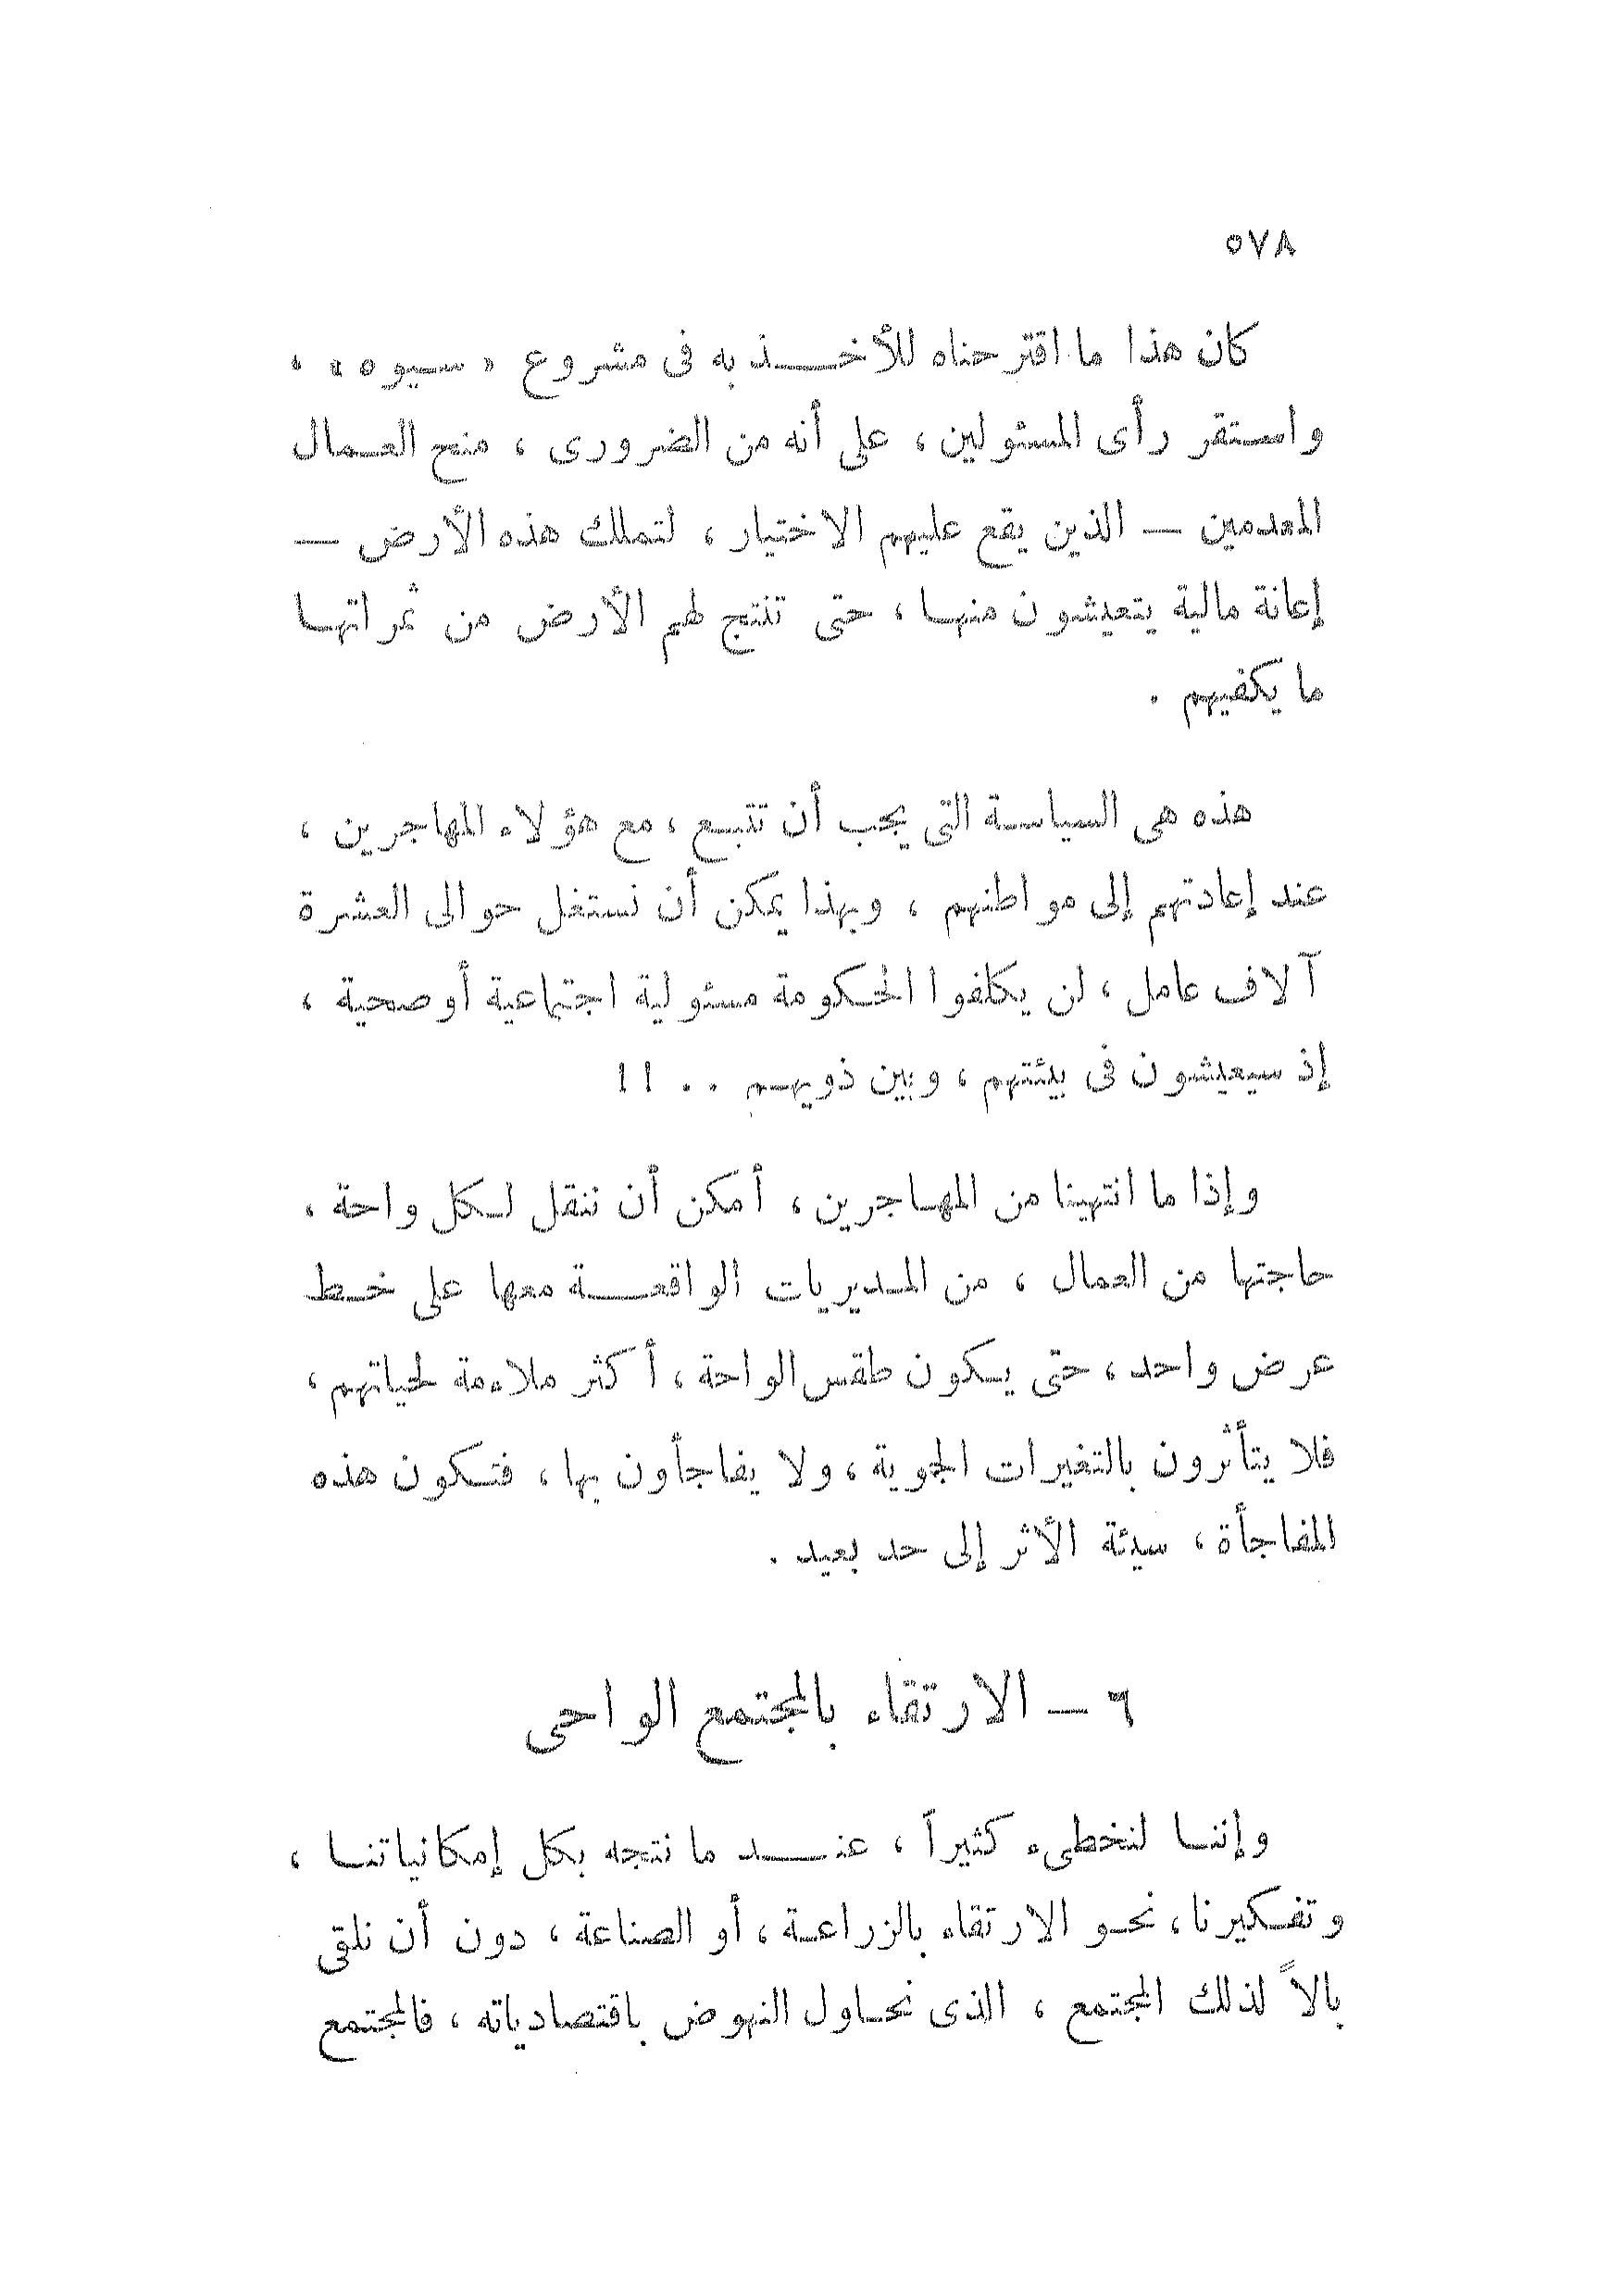 ٥٧٨
كان هذا ما اقترحناه للأخذ به فى مشروع « سيوه » ،
واستقر رأى المسئولين ، على أنه من الضرورى ، منح العمال
المعدمين — الذين يقع عليهم الاختيار ، لتملك هذه الأرض —
إعانة مالية يتعيشون منها ، حتى تنتج لهم الأرض من ثمراتها
ما يكفيهم .
هذه هى السياسة التى يجب أن تتبع ، مع هؤلاء المهاجرين ،
عند إعادتهم إلى مواطنهم ، وبهذا يمكن أن نستغل حوالى العشرة
آلاف عامل ، لن يكلفوا الحكومة مسئولية اجتماعية أو صحية ،
إذ سيعيشون فى بيئتهم ، وبين ذويهم . . !!
وإذا ما انتهينا من المهاجرين ، أمكن أن ننقل لكل واحة ،
حاجتها من العمال ، من المديريات الواقعة معها على خط
عرض واحد ، حتى يكون طقس الواحة ، أكثر ملاءمة لحياتهم ،
فلا يتأثرون بالتغيرات الجوية ، ولا يفاجأون بها ، فتكون هذه
المفاجأة ، سيئة الأثر إلى حد بعيد .
٦ — الارتقاء بالمجتمع الواحى
وإننا لنخطىء كثيراً ، عند ما نتجه بكل إمكانياتنا ،
وتفكيرنا ، نحو الارتقاء بالزراعة ، أو الصناعة ، دون أن نلقى
بالاً لذلك المجتمع ، الذى نحاول النهوض باقتصادياته ، فالمجتمع